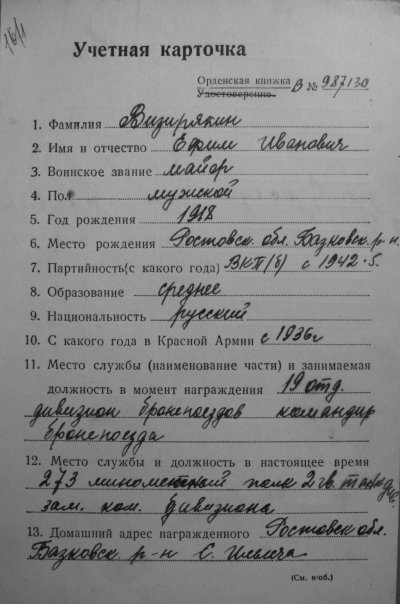 Учетная карточка
Орденская книжка
Удостоверение В № 987130
1. Фамилия Визирякин
2. Имя и отчество Ефим Иванович
3. Воинское звание майор
4. Пол мужской
5. Год рождения 1918
6. Место рождения Ростовск. обл. Базковск. р-н.
7. Партийность(с какого года) ВКП(б) с 1942.
8. Образование среднее
9. Национальность русский
10. С какого года в Красной Армии с 1936г
11. Место службы (наименование части) и занимаемая
должность в момент награждения 19 отд.
дивизион бронепоездов командир
бронепоезда
12. Место службы и должность в настоящее время
273 минометный полк 2 гв.
зам. ком. дивизиона
13. Домашний адрес награжденного Ростовск обл.
Базковск р-н С. Ильича
(См. н/об.)